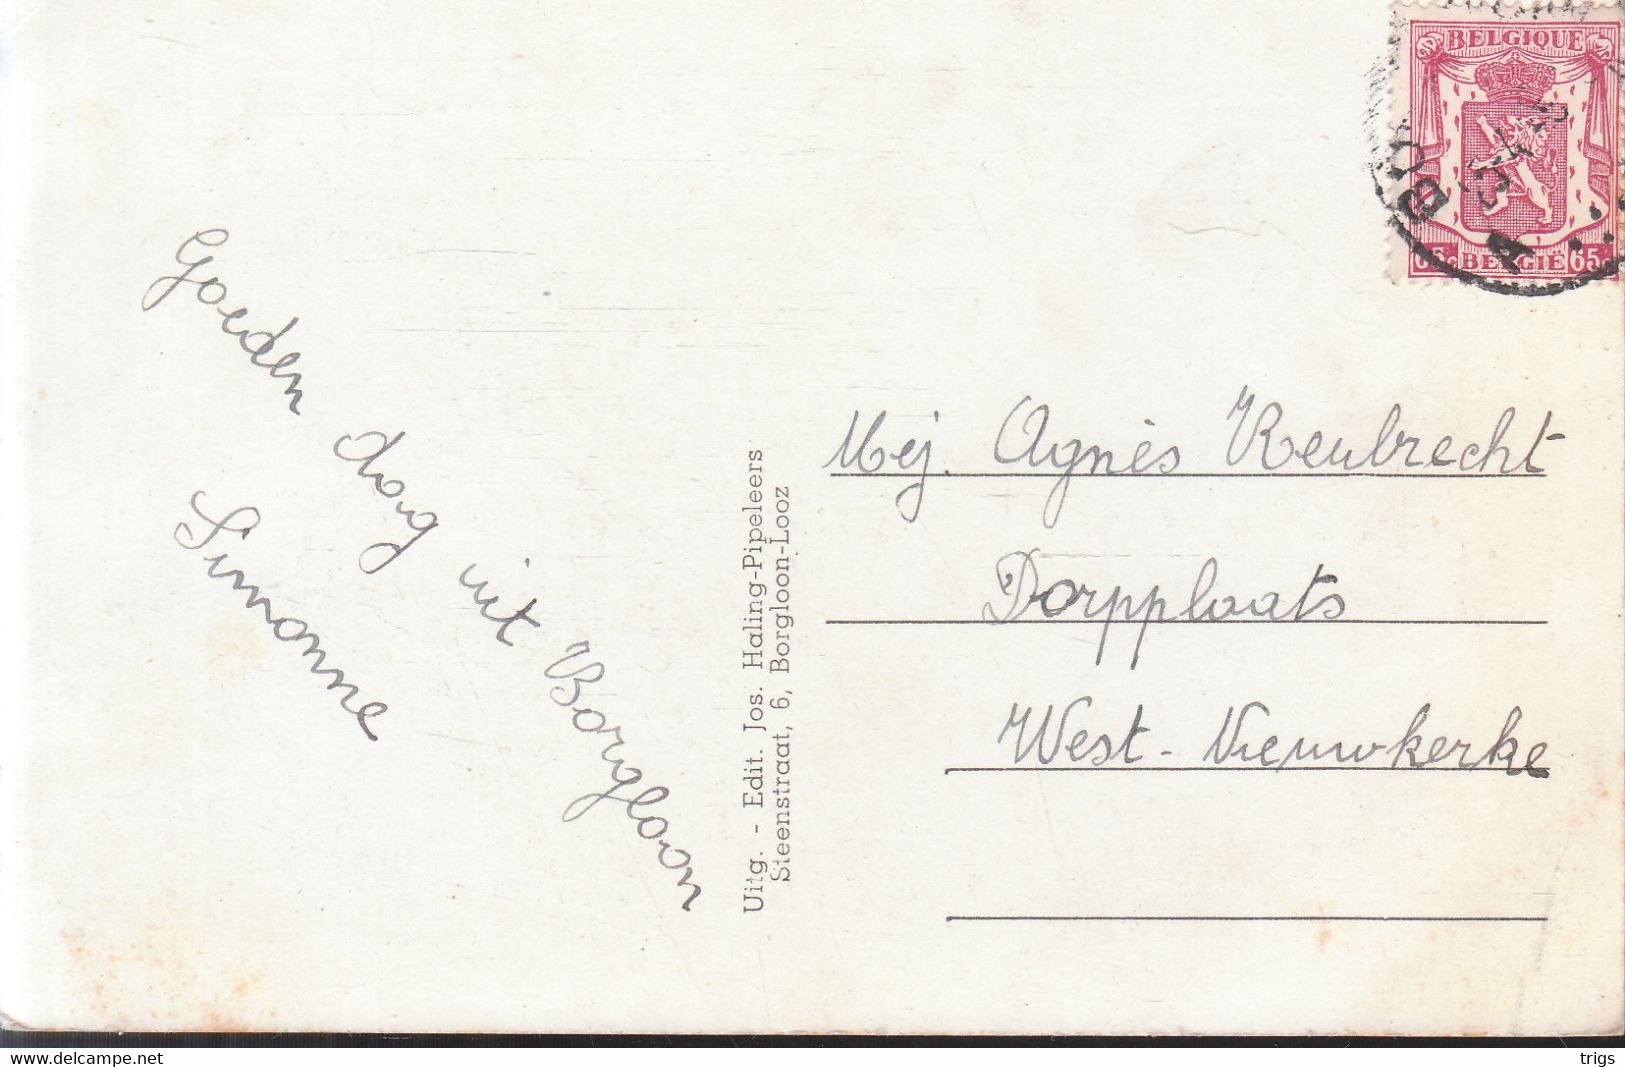 Goeden dag uit Borgloon
Simonne
Uitg. - Edit. Jos. Haling-Pipeleers
Steenstraat, 6, Borgloon-Looz
BELGIQUE
65c BELGIË 65c
Mej. Agnès Reubrecht
Dorpplaats
West-Nieuwkerke
www.delcampe.net
trigs